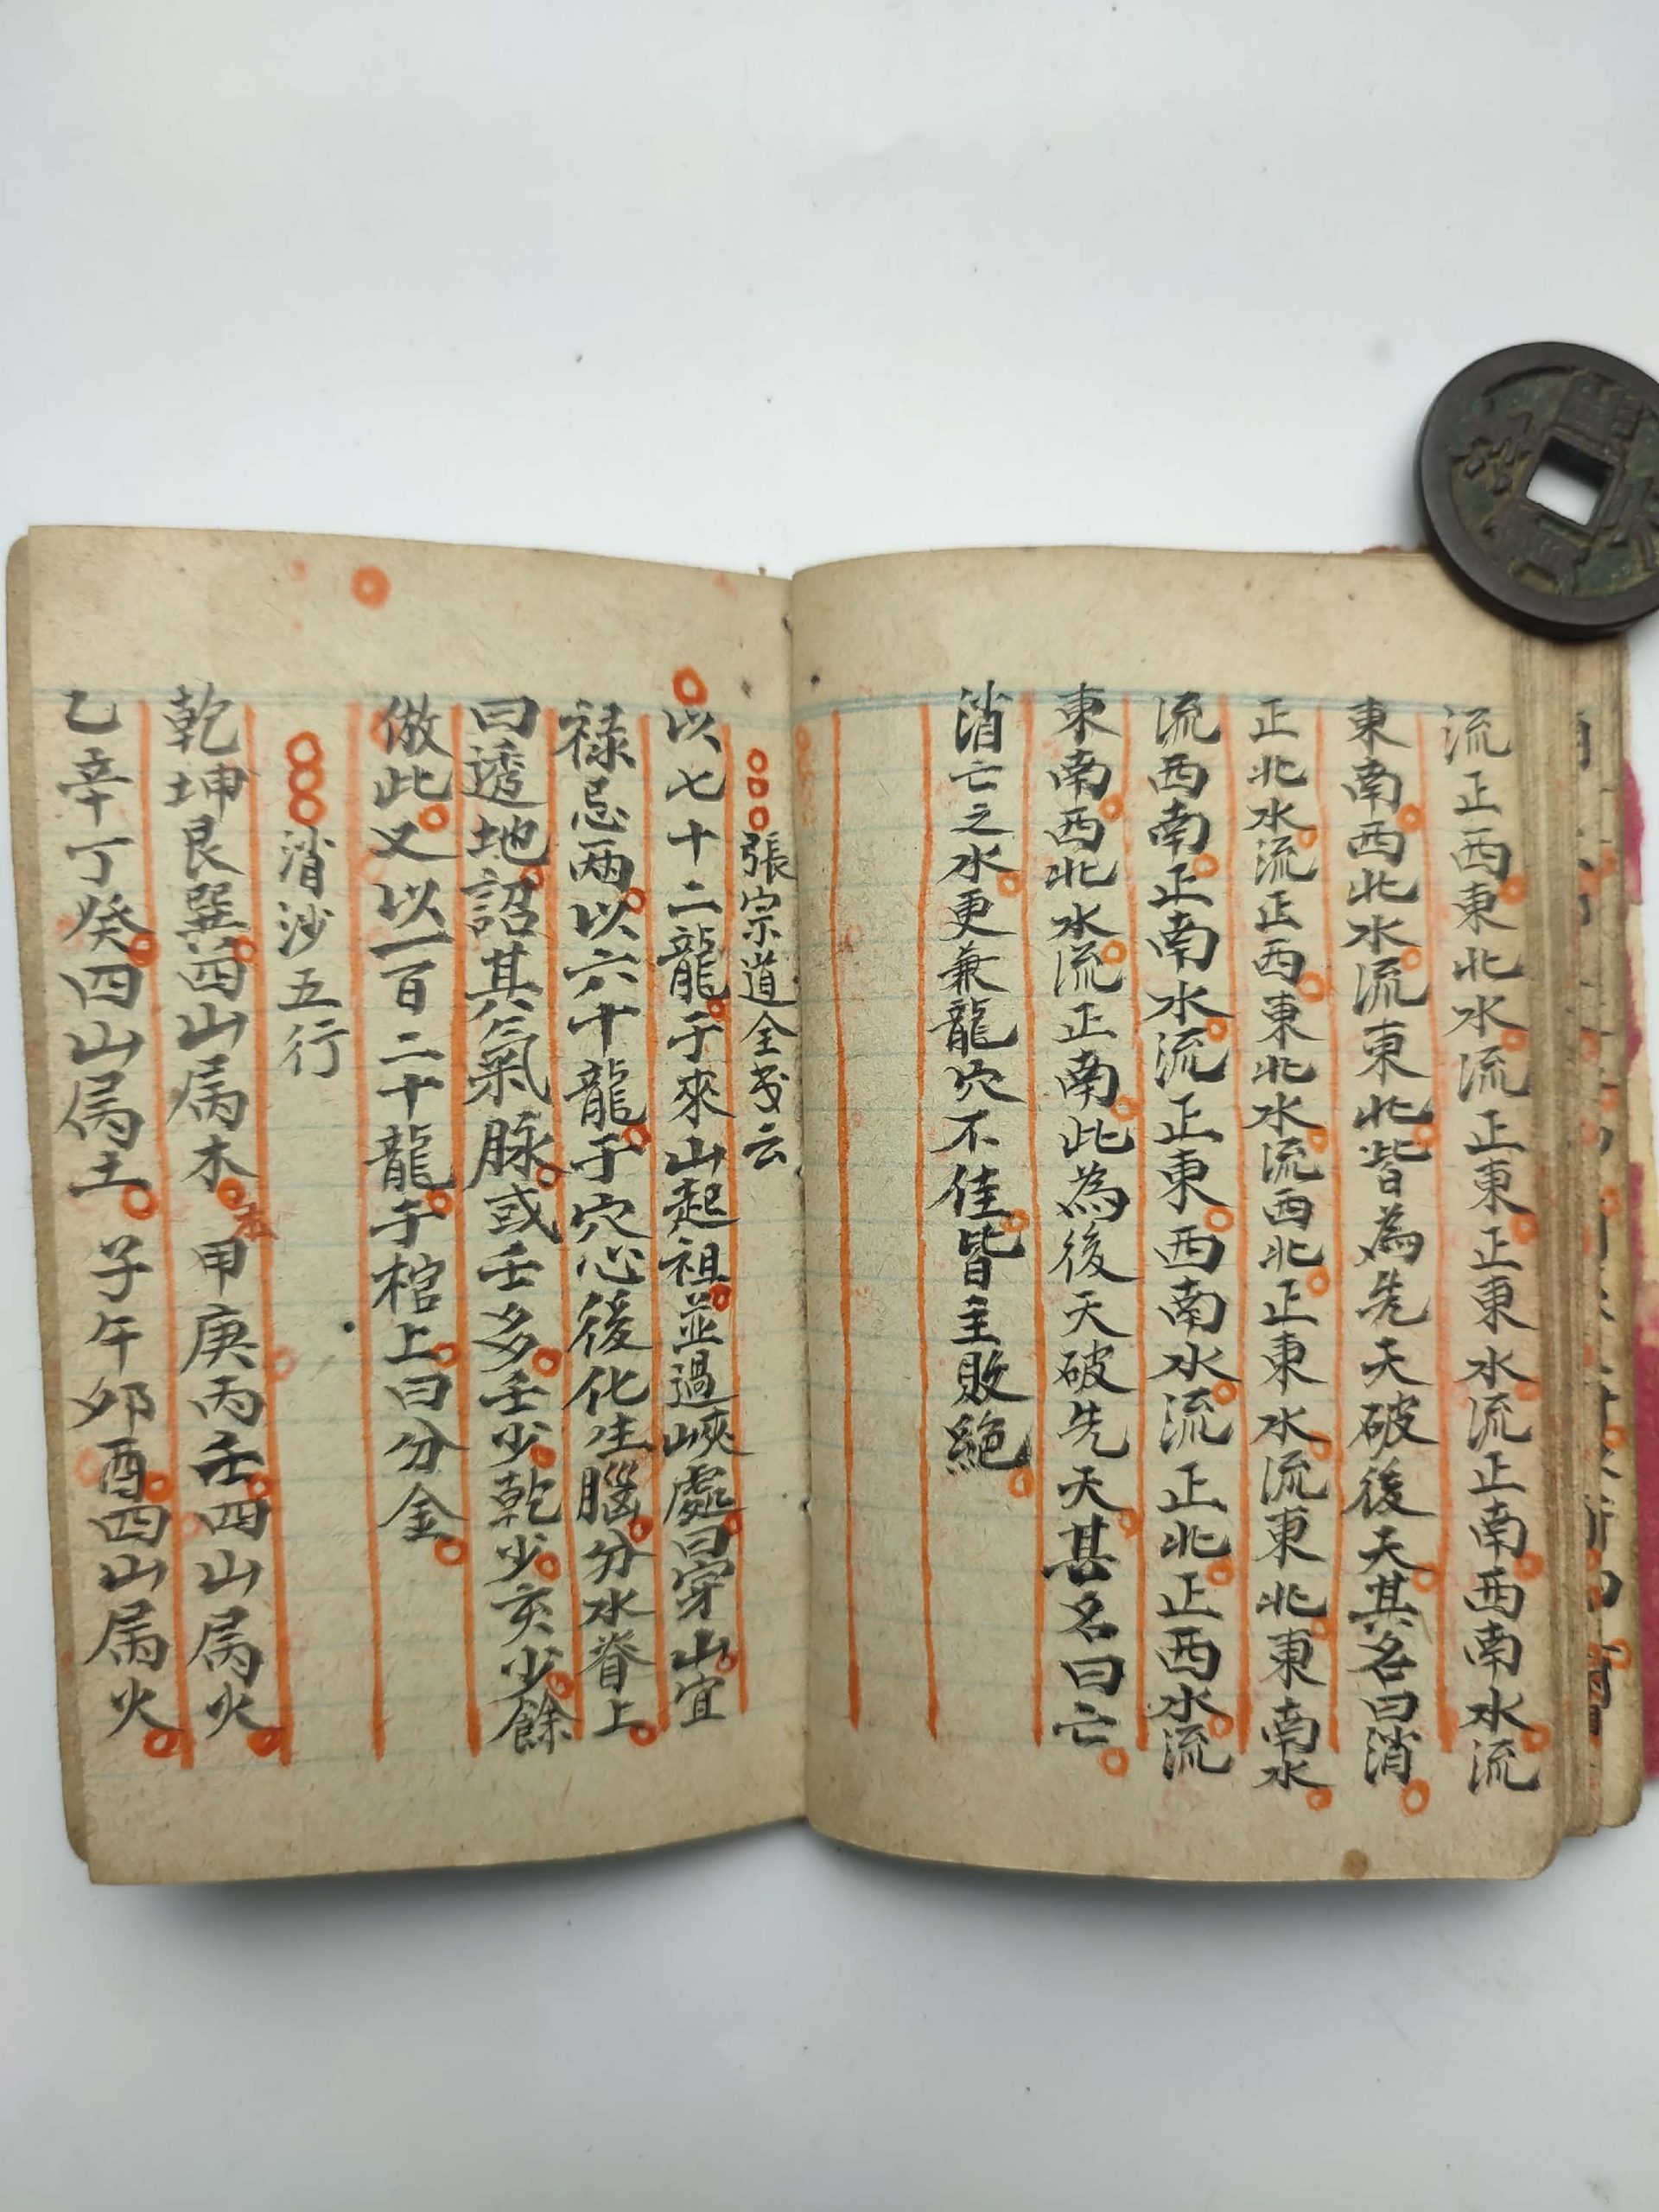 流正西東北水流正東正東水流正南西南水流
東南西北水流東北皆為先天破後天其名曰消
正北水流正西東北水流西北正東水流東北東南水
流西南正南水流正東西南水流正北正西水流
東南西北水流正南此為後天破先天其名曰亡
消亡之水更兼龍穴不佳皆主敗絕
張宗道全書云
以七十二龍于來山起祖並過峽處曰穿山宜
祿忌兩以六十龍于穴心後化生腦分水脊上
曰透地詔其氣脉或壬多壬少乾少亥少餘
倣此又以一百二十龍于棺上曰分金
消沙五行
乾坤艮巽四山属木甲庚丙壬四山属火
乙辛丁癸四山属土子午卯酉四山属火